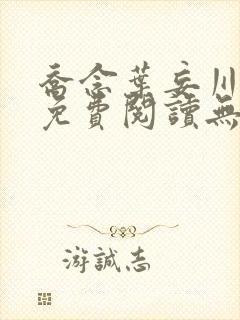 喬念葉妄川
免費閱讀無
游誠志